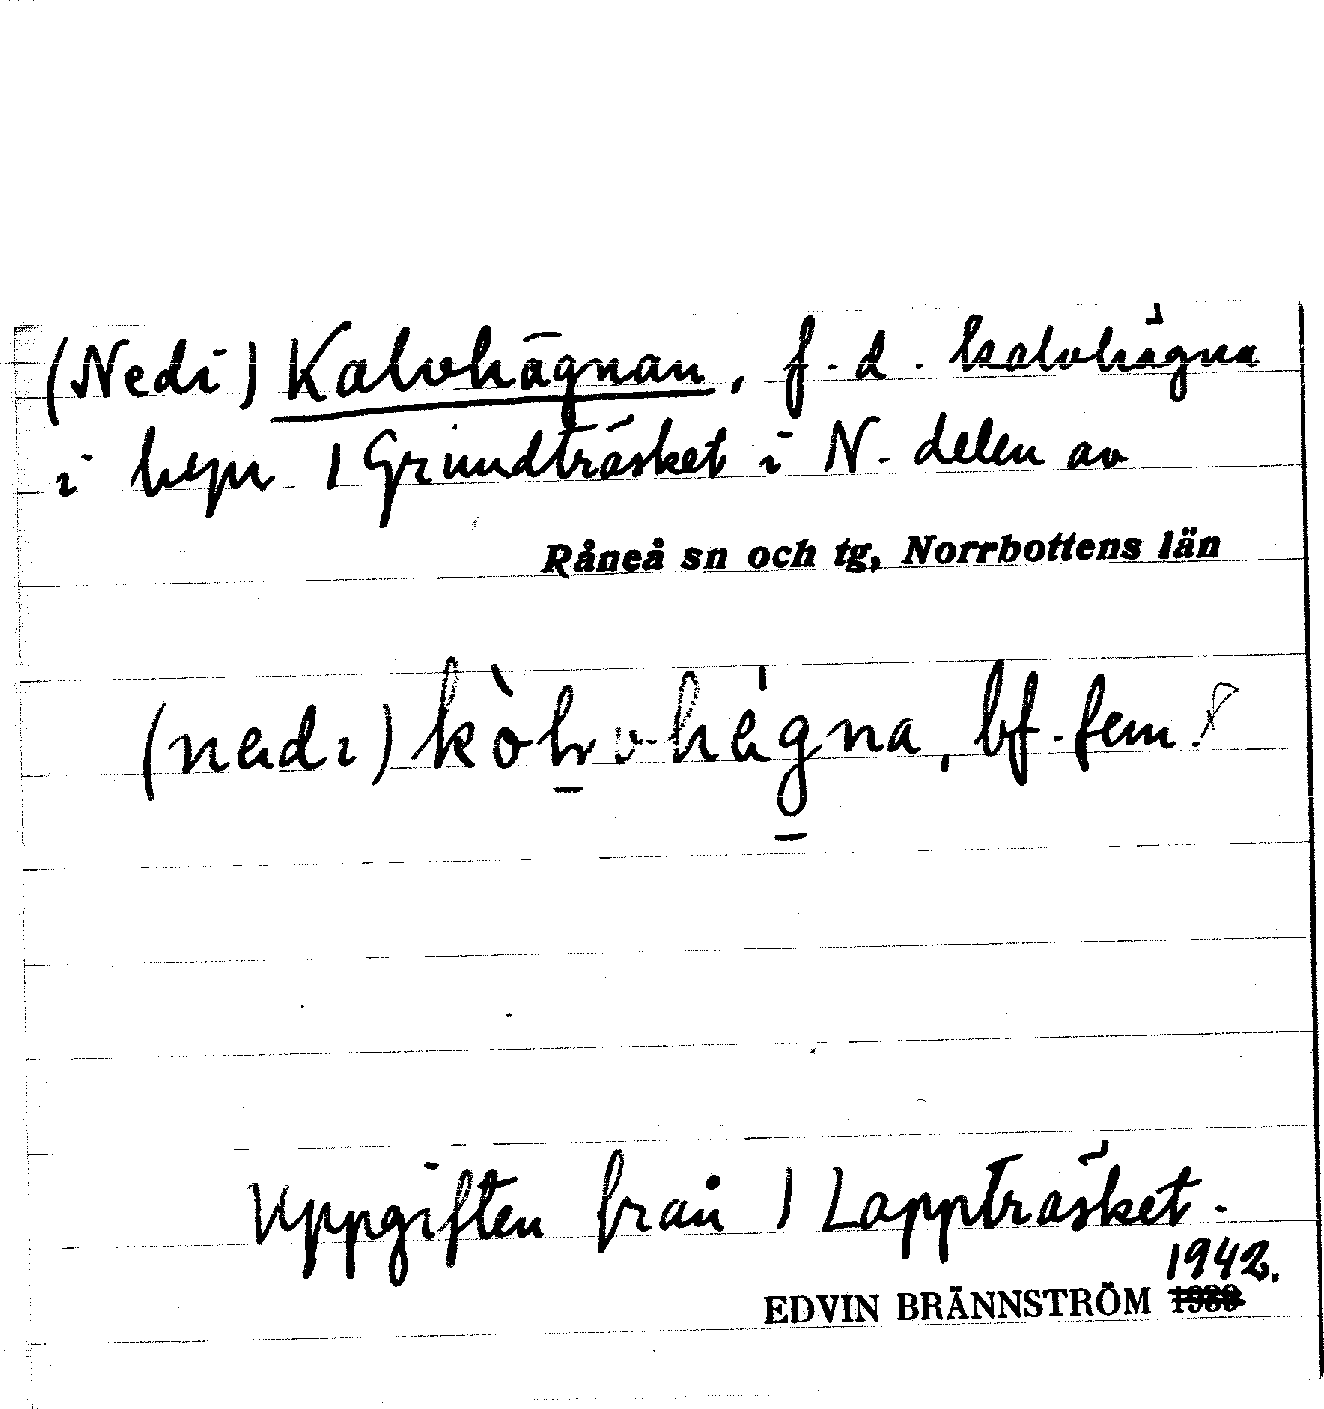 (Nedi) Kalvhägnan, f.d. kalvhägna
i byn 1 Grundträsket i N. delen av
Råneå sn och tg, Norrbottens län
bf. fem.
Uppgiften från 1 Lappträsket.
1942.
EDVIN BRÄNNSTRÖM 1930